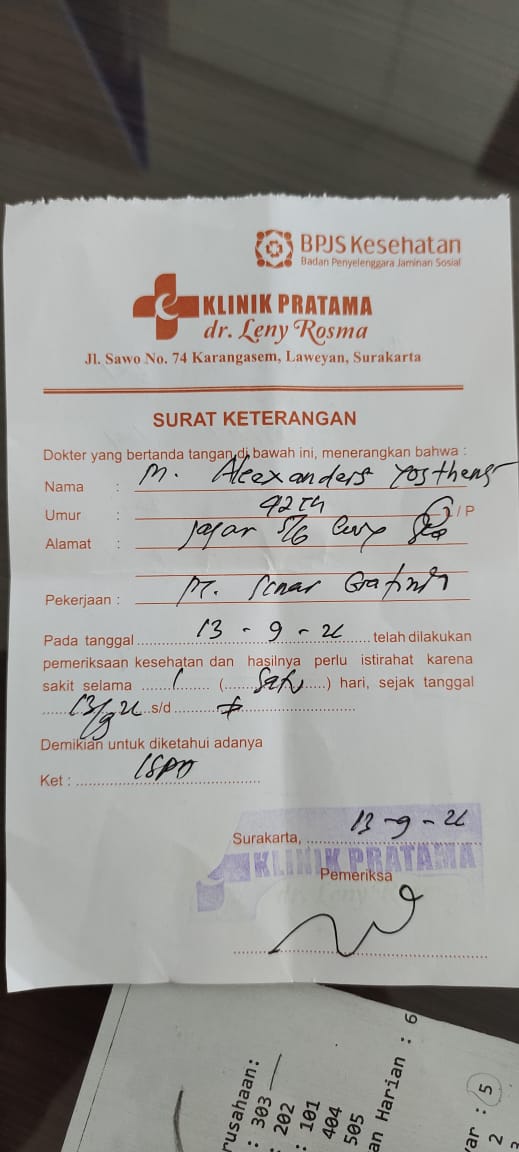 BPJS Kesehatan
Badan Penyelenggara Jaminan Sosial
KLINIK PRATAMA
dr. Leny Rosma
Jl. Sawo No. 74 Karangasem, Laweyan, Surakarta
SURAT KETERANGAN
Dokter yang bertanda tangan di bawah ini, menerangkan bahwa :
Nama : M. Alexanders Yosthens
Umur : 42 th / P
Alamat : 5/6
Pekerjaan :
Pada tanggal 13 - 9 - telah dilakukan
pemeriksaan kesehatan dan hasilnya perlu istirahat karena
sakit selama 1 (Satu) hari, sejak tanggal
13/9 s/d
Demikian untuk diketahui adanya
Ket : ISPA
Surakarta, 13 - 9 -
KLINIK PRATAMA
Pemeriksa
dr. Leny
rusahaan:
: 303
: 202
: 101
404
505
an Harian : 6
var : 5
2